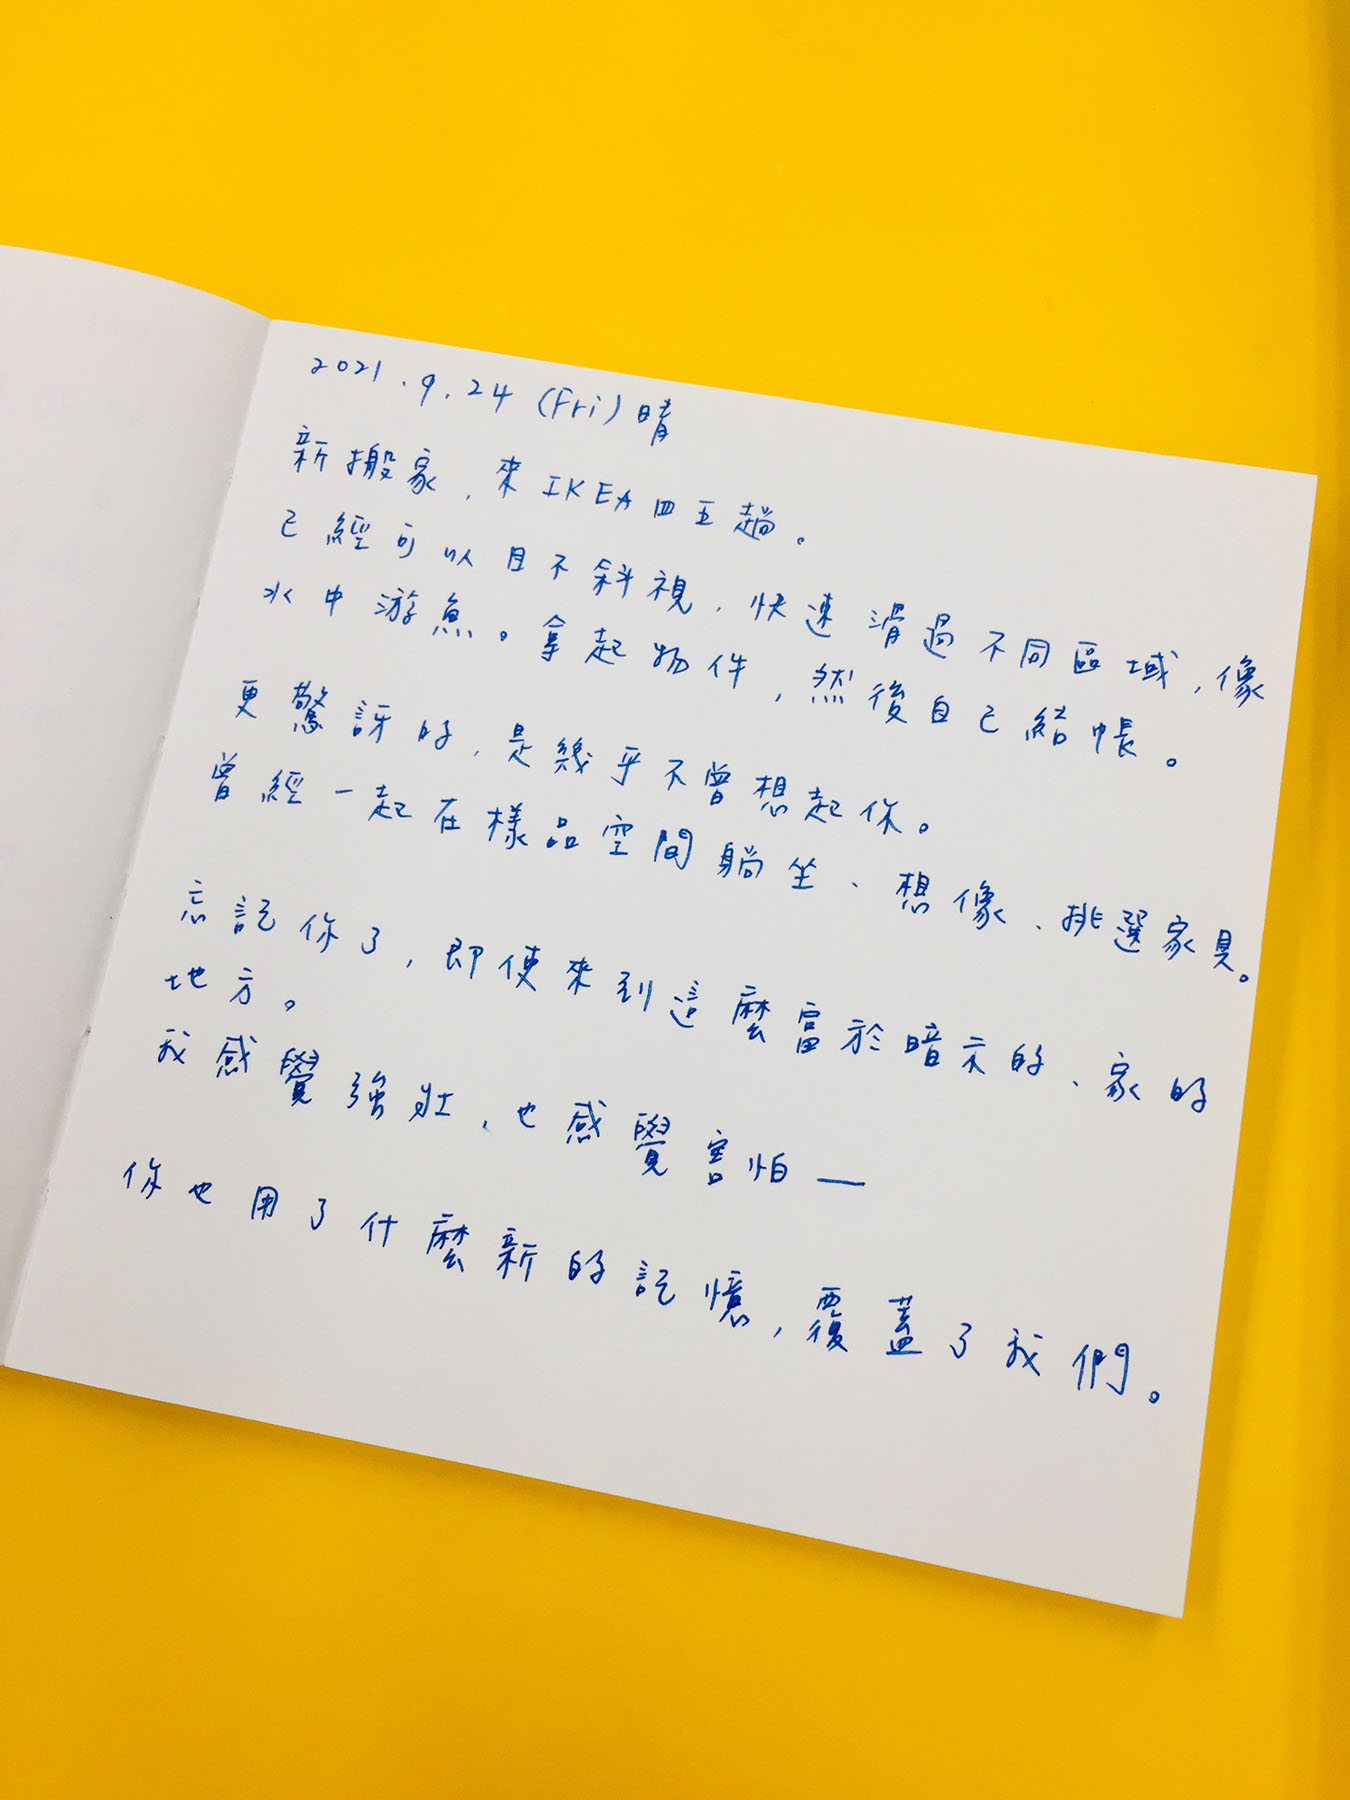 2021.9.24 (Fri) 晴
新搬家，來IKEA四五趟。
已經可以目不斜視，快速滑過不同區域，像
水中游魚。拿起物件，然後自己結帳。
更驚訝的，是幾乎不曾想起你。
曾經一起在樣品空間躺坐、想像、挑選家具。
忘記你了，即使來到這麼富於暗示的、家的
地方。
我感覺強壯，也感覺害怕—
你也用了什麼新的記憶，覆蓋了我們。